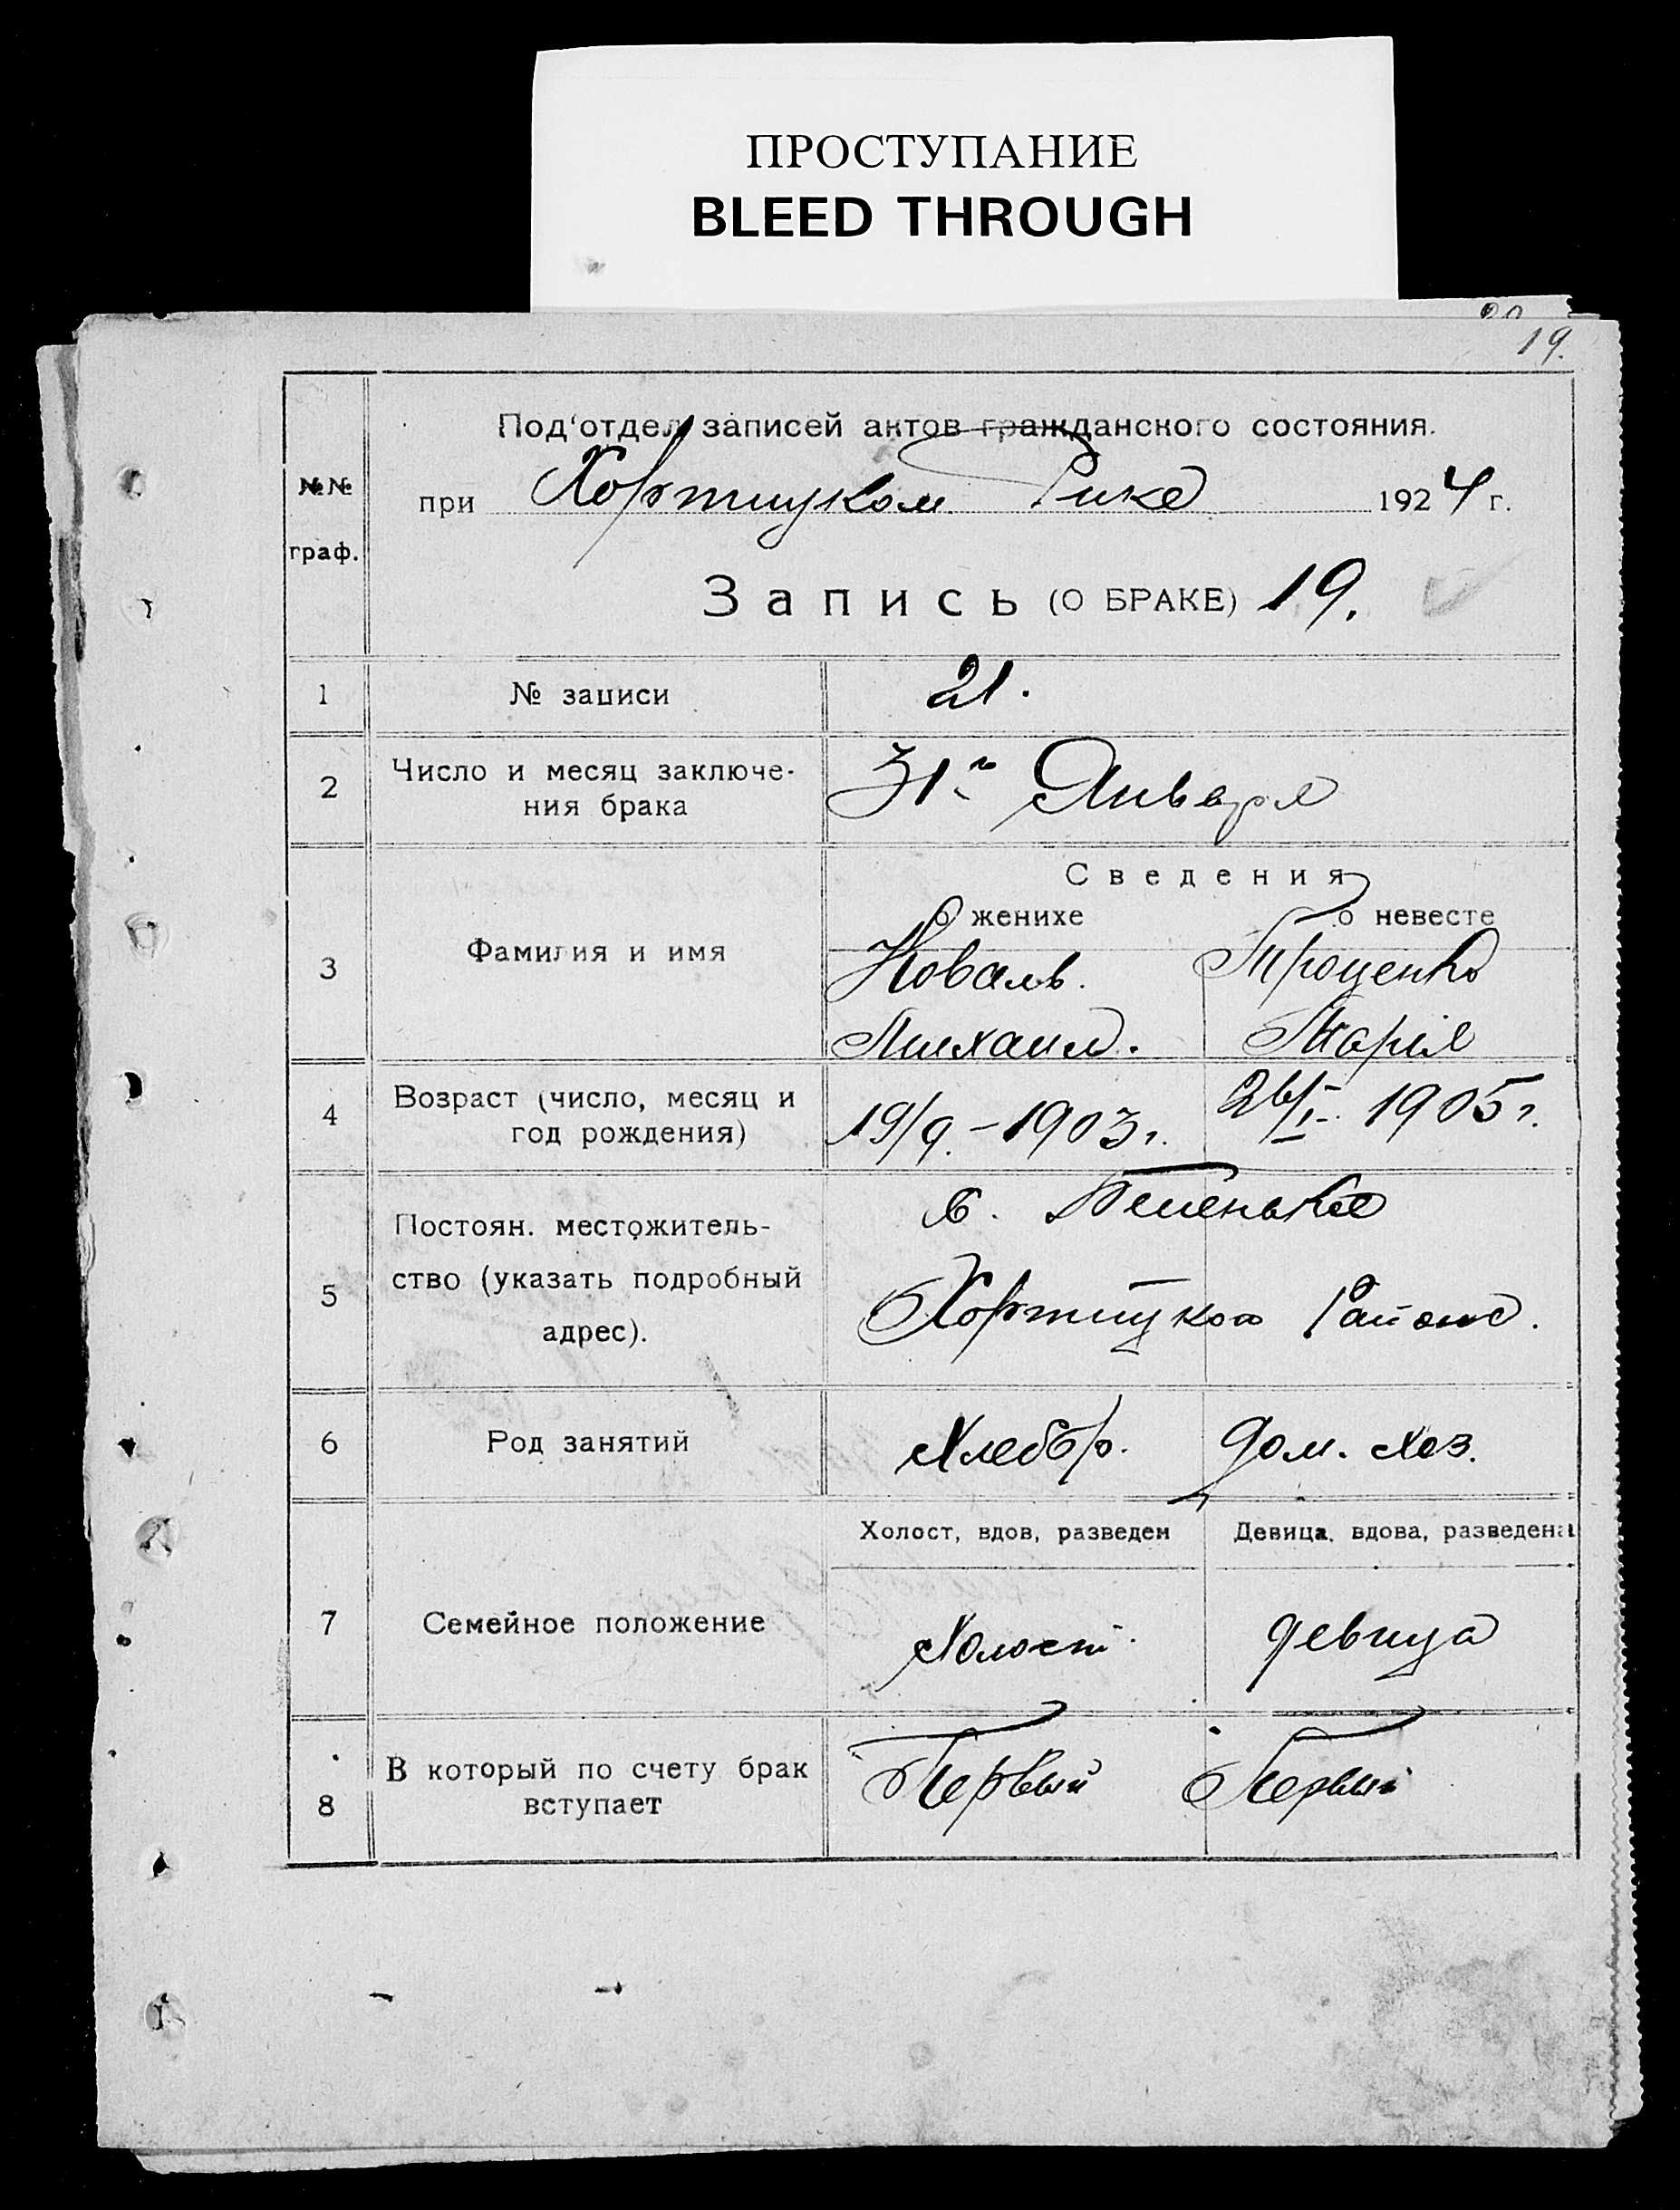 ПРОСТУПАНИЕ
BLEED THROUGH
19.
Под'отдел записей актов гражданского состояния.
№№ граф.
при Хортицком Рике 1924 г.
Запись (О БРАКЕ) 19.
1 № записи 21.
2 Число и месяц заключе-
ния брака
31го Января
Сведения
о женихе о невесте
3 Фамилия и имя
Коваль. Троценко
Михаил. Марія
4 Возраст (число, месяц и
год рождения)
19/9. - 1903 г. 26/I. 1905 г.
5 Постоян. местожитель-
ство (указать подробный
адрес).
с. Беленькое
Хортицкого Района.
6 Род занятий Хлебор. Дом. Хоз.
Холост, вдов, разведен Девица, вдова, разведена
7 Семейное положение Холост. девица
8 В который по счету брак
вступает
Первый Первый